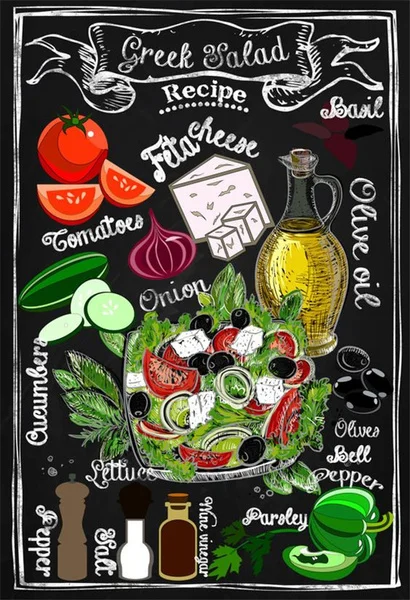 Greek Salad
Recipe
Basil
Feta Cheese
Tomatoes
Olive oil
Onion
Cucumbers
Olives
Bell
Pepper
Lettuce
Pepper
Salt
Wine vinegar
Parsley